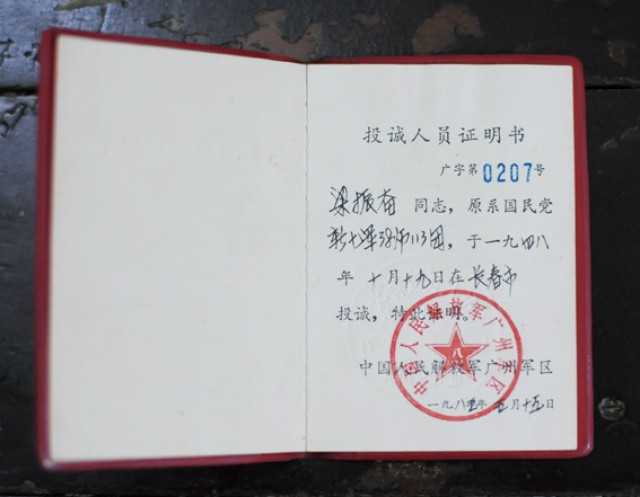 投诚人员证明书
广字第0207号
梁振奋 同志，原系国民党
新七军38师113团，于一九四八
年 十月十九日在长春市
投诚，特此证明。
中国人民解放军广州军区
一九八五年 五月十五日
中国人民解放军广州军区
八一